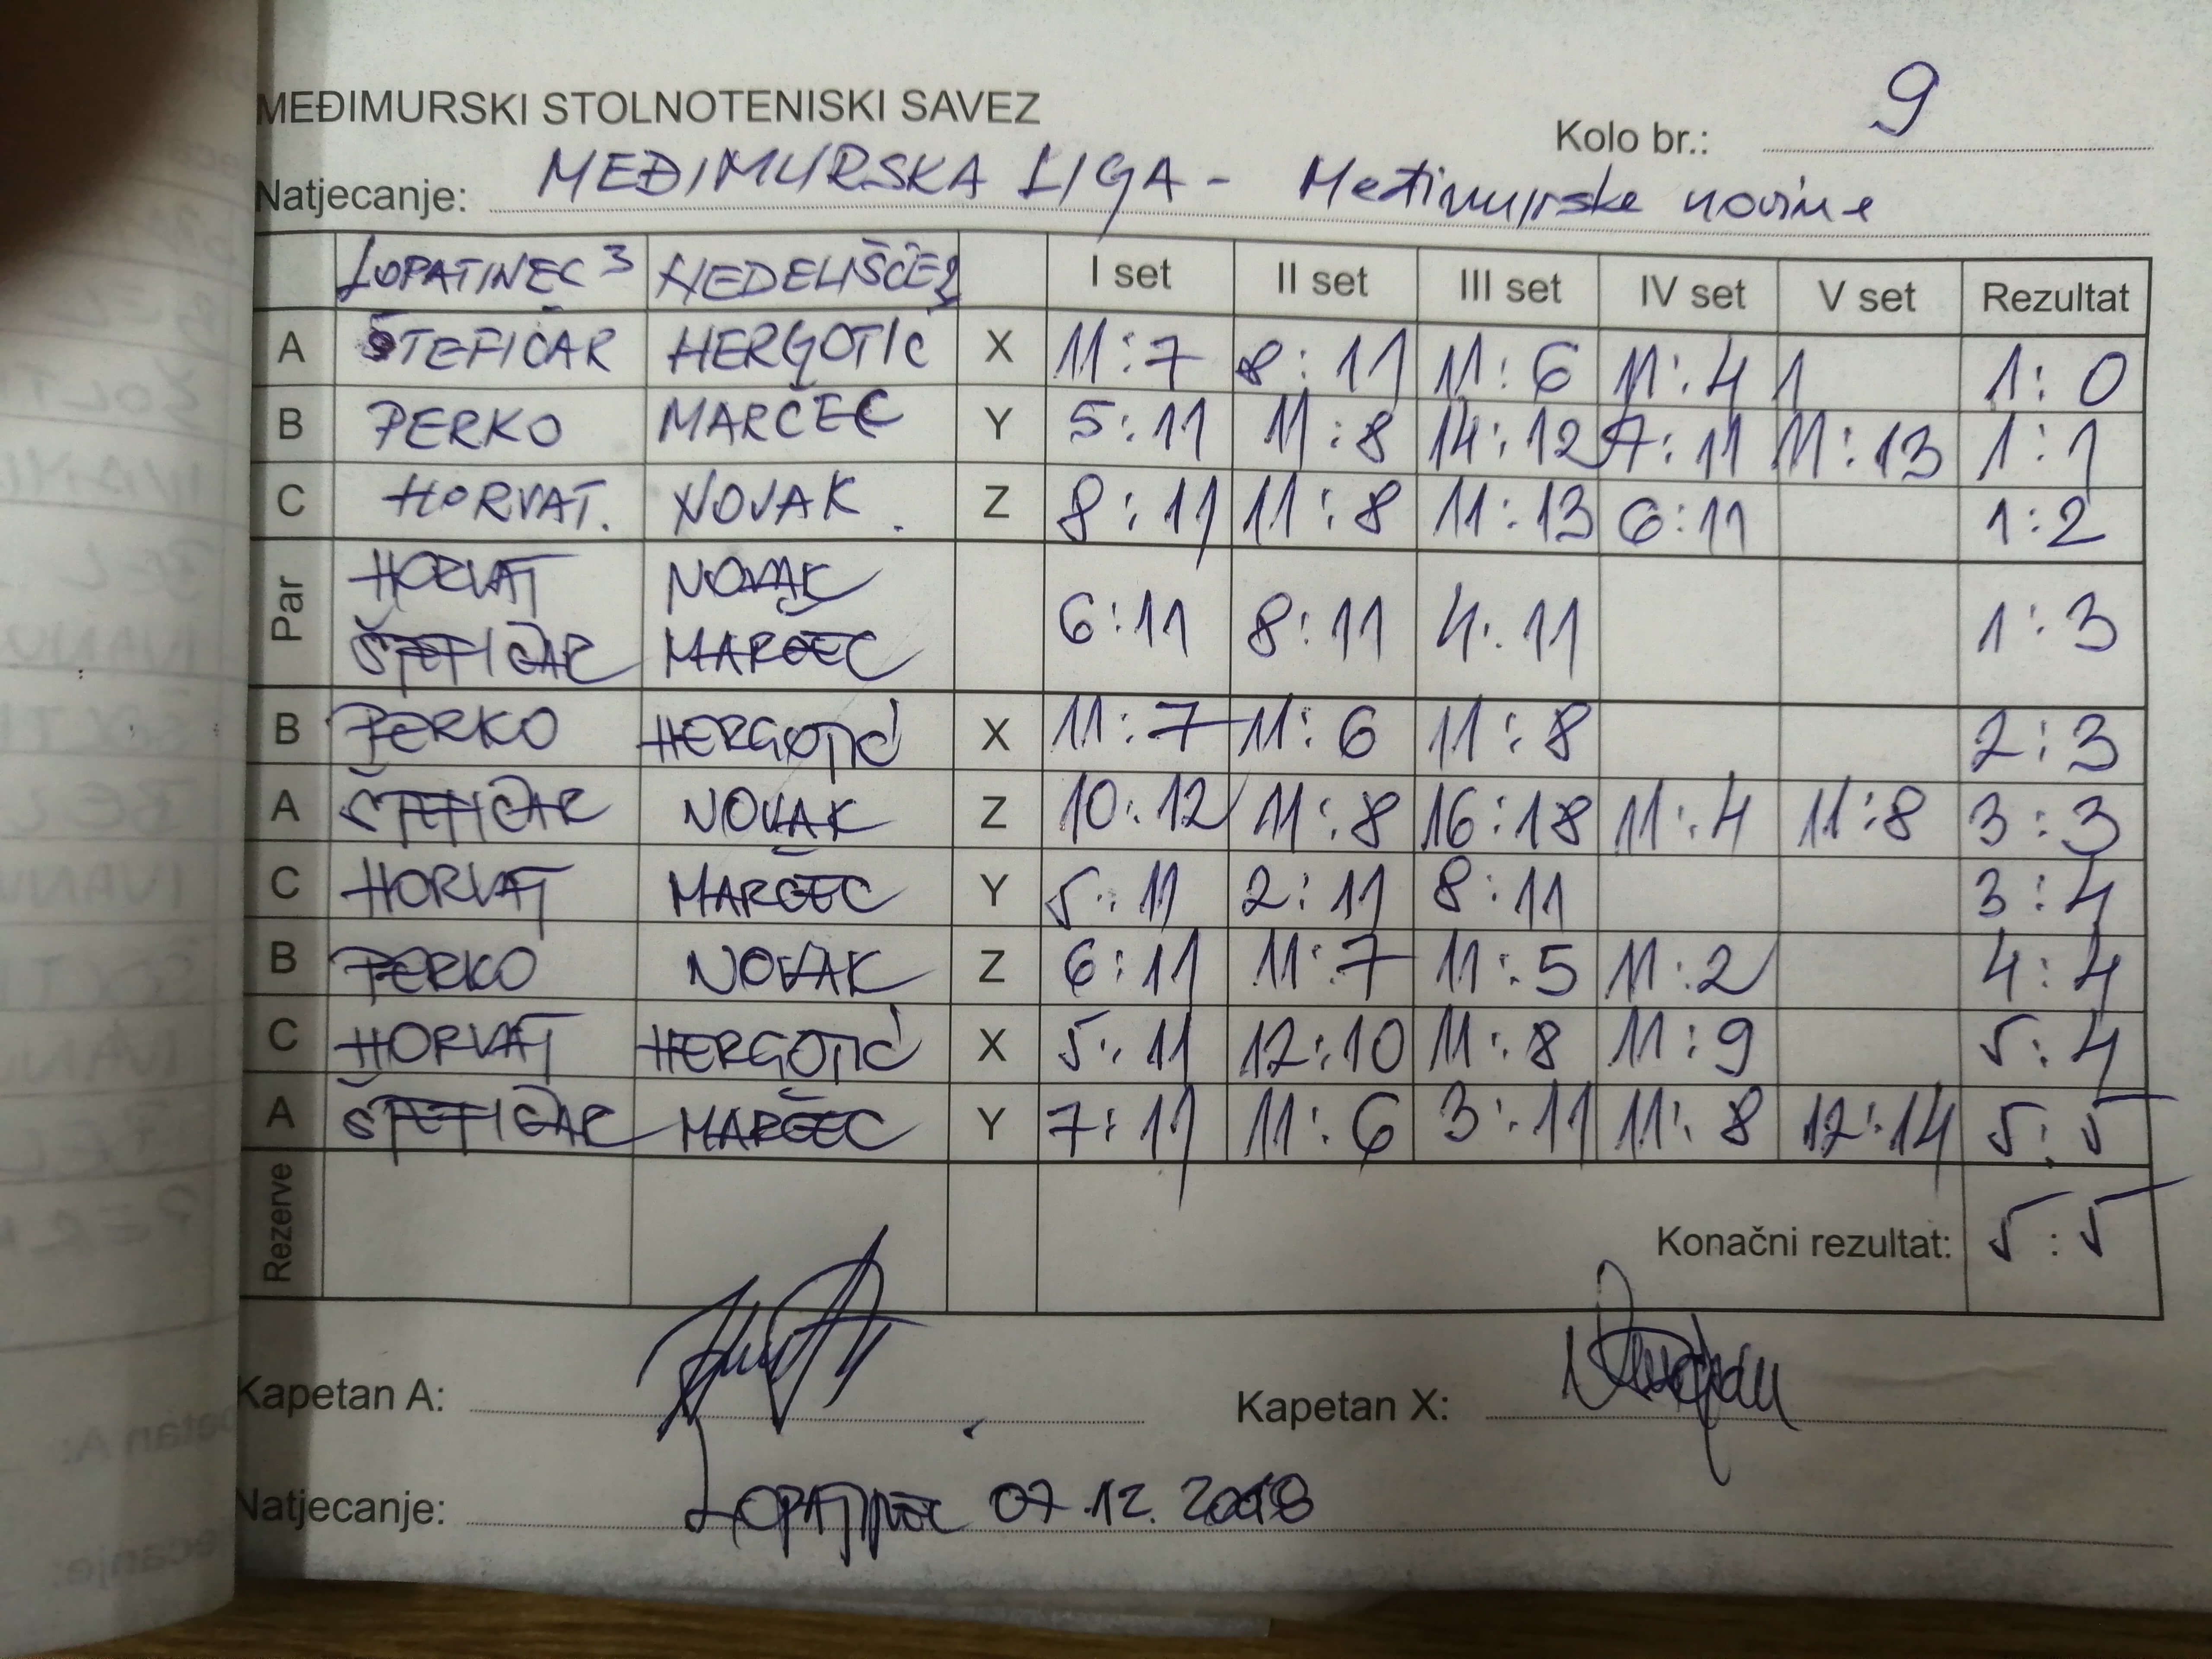 MEĐIMURSKI STOLNOTENISKI SAVEZ
Kolo br.: 9
Natjecanje: MEĐIMURSKA LIGA - Međimurske novine
LOPATINEC 3 NEDELIŠĆE 2 I set II set III set IV set V set Rezultat
A ŠTEFIČAR HERGOTIĆ X 11:7 8:11 11:6 11:4 1:0
B PERKO MARČEC Y 5:11 11:8 14:12 7:11 11:13 1:1
C HORVAT. NOVAK. Z 8:11 11:8 11:13 6:11 1:2
Par HORVAT NOVAK 6:11 8:11 4:11 1:3
ŠTEFIČAR MARČEC
B PERKO HERGOTIĆ X 11:7 11:6 11:8 2:3
A ŠTEFIČAR NOVAK Z 10:12 11:8 16:18 11:4 11:8 3:3
C HORVAT MARČEC Y 5:11 2:11 8:11 3:4
B PERKO NOVAK Z 6:11 11:7 11:5 11:2 4:4
C HORVAT HERGOTIĆ X 5:11 12:10 11:8 11:9 5:4
A ŠTEFIČAR MARČEC Y 7:11 11:6 3:11 11:8 12:14 5:5
Rezerve Konačni rezultat: 5:5
Kapetan A: Kapetan X:
Natjecanje: LOPATINEC 07.12.2018